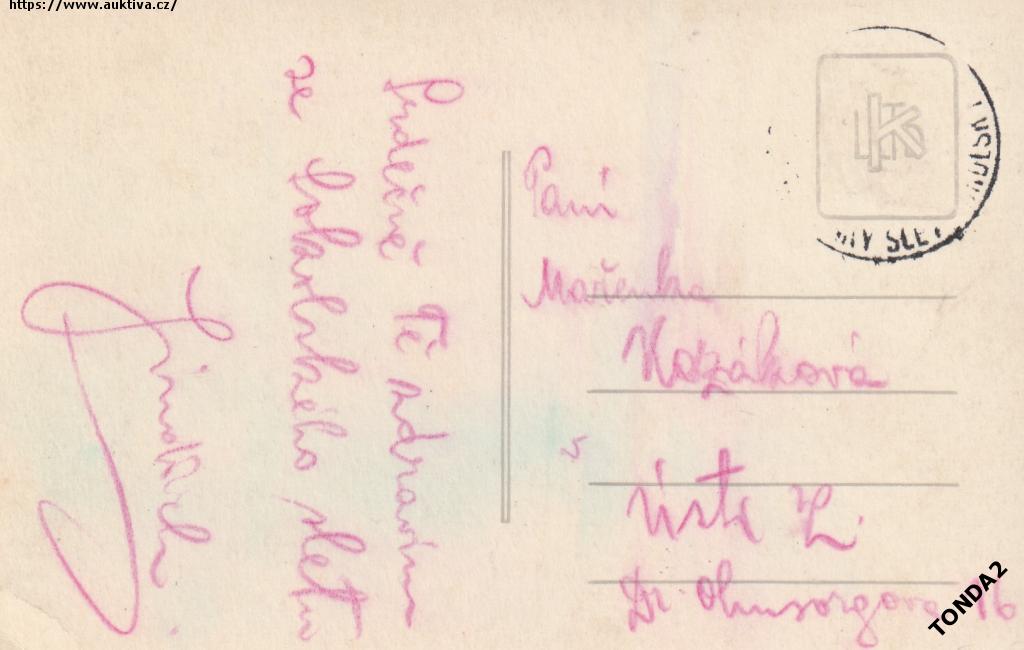 https://www.auktiva.cz/
Srdečně Tě zdravím
ze Sokolského sletu
Jindřich
Paní
Mařenka
Kozáková
Ústí
Dr. Ohnsorgova 16
SLET
TONDA2